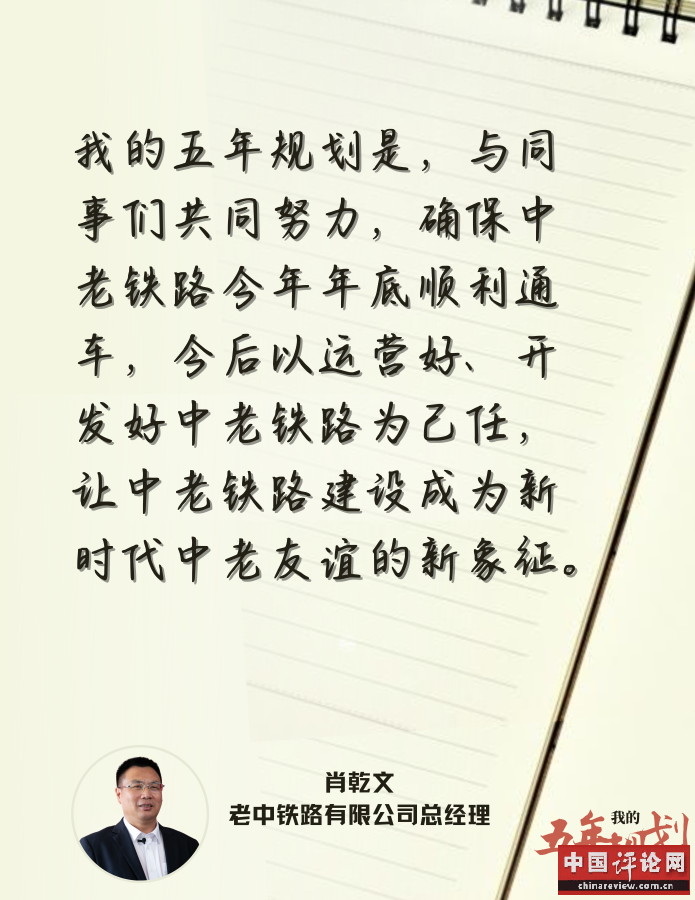 我的五年规划是，与同
事们共同努力，确保中
老铁路今年年底顺利通
车，今后以运营好、开
发好中老铁路为己任，
让中老铁路建设成为新
时代中老友谊的新象征。
肖乾文
老中铁路有限公司总经理
我的
五年规划
中国评论网
chinareview.com.cn